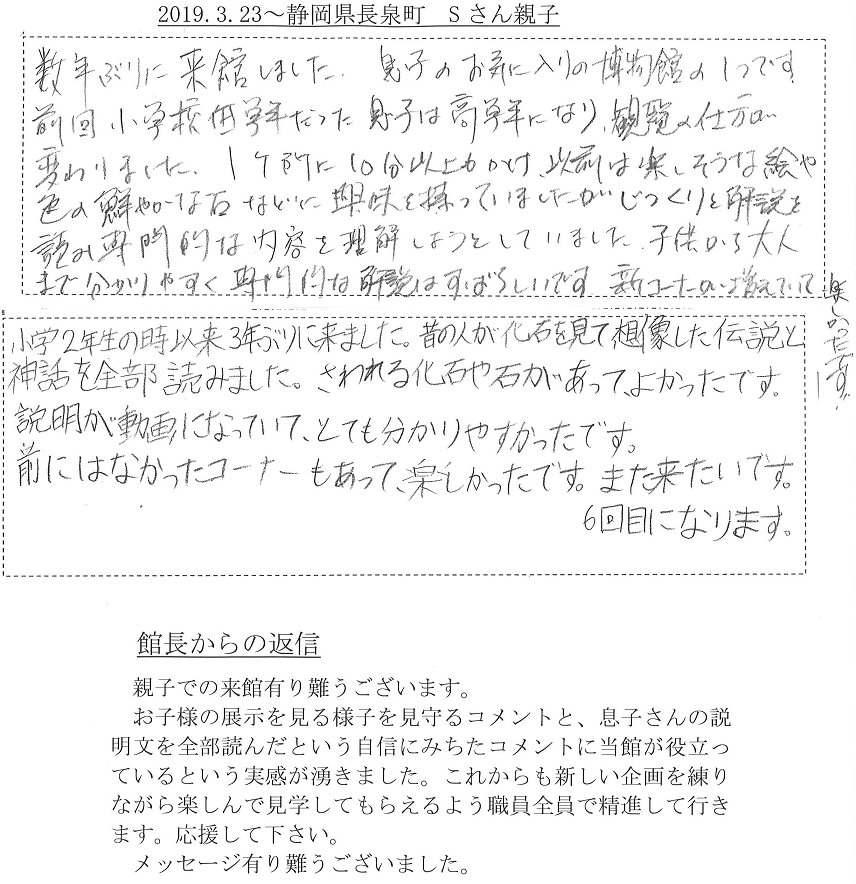 2019.3.23～静岡県長泉町　Sさん親子
数年ぶりに来館しました。息子のお気に入りの博物館の1つです
前回小学校低学年だった息子は高学年になり、観覧の仕方が
変わりました。1ヶ所に10分以上かけ、以前は楽しそうな絵や
色の鮮やかな石などに興味を持っていましたがじっくりと解説を
読み専門的な内容を理解しようとしていました。子供から大人
まで分かりやすく専門的な解説はすばらしいです。新コーナーが増えていて
楽しかったです!
小学2年生の時以来3年ぶりに来ました。昔の人が化石を見て想像した伝説と
神話を全部読みました。さわれる化石や石があって、よかったです。
説明が動画になっていて、とても分かりやすかったです。
前にはなかったコーナーもあって、楽しかったです。また来たいです。
6回目になります。
館長からの返信
親子での来館有り難うございます。
お子様の展示を見る様子を見守るコメントと、息子さんの説
明文を全部読んだという自信にみちたコメントに当館が役立っ
ているという実感が湧きました。これからも新しい企画を練り
ながら楽しんで見学してもらえるよう職員全員で精進して行き
ます。応援して下さい。
メッセージ有り難うございました。